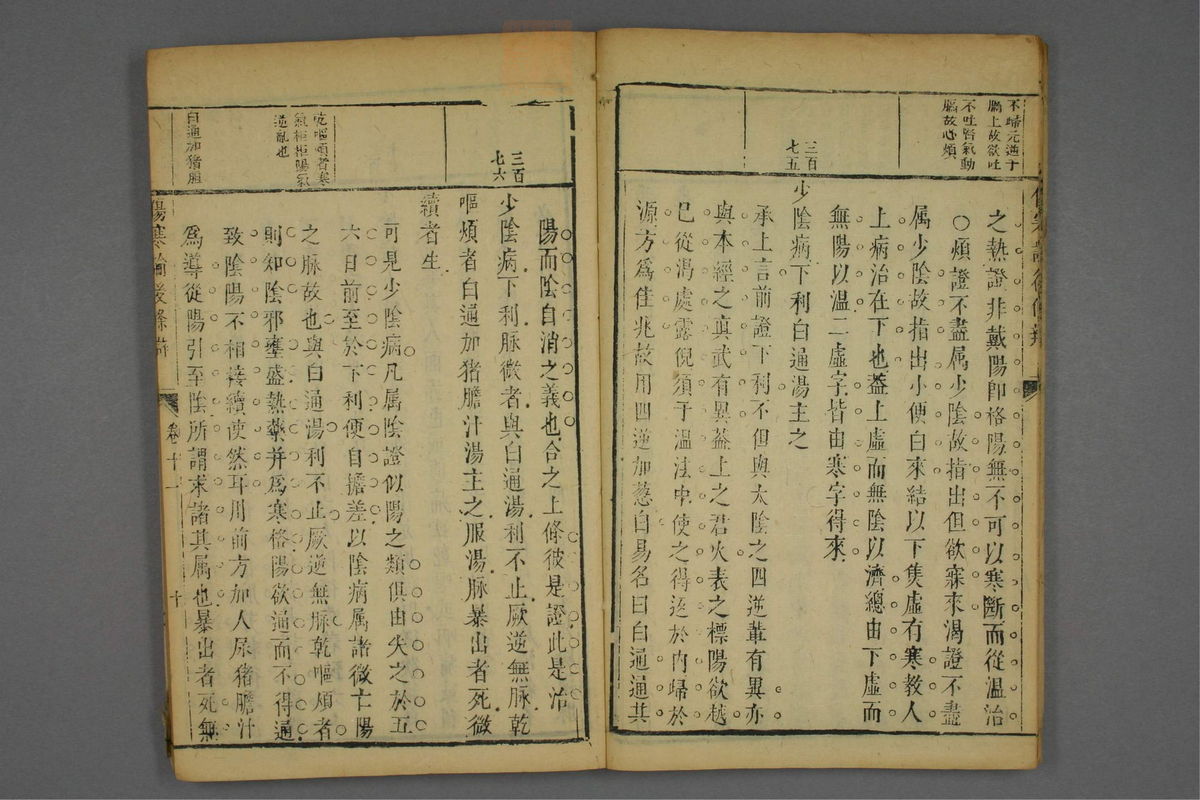 不歸元逆于
膈上故欲吐
不吐腎氣動
膈故心煩
三百
七五
之熱證非戴陽即格陽無不可以寒斷而從溫治
○煩證不盡属少陰故指出但欲寐來渴證不盡
属少陰故指出小便白來結以下隻虛有寒教人
上病治在下也葢上虛而無陰以濟總由下虛而
無陽以温二虛字皆由寒字得來
少陰病下利白通湯主之
承上言前證下利不但與太陰之四逆軰有異亦
與本經之眞武有異葢上之君火表之標陽欲越
已從渴處露倪須于溫法中使之得返於内歸於
源方爲佳兆故用四逆加葱白易名曰白通通其
三百
七六
乾嘔煩者寒
氣柜柜陽氣
逆亂也
白通加猪膽
陽而陰自消之義也合之上條彼是證此是治
少陰病下利脉微者與白通湯利不止厥逆無脉乾
嘔煩者白通加猪膽汁湯主之服湯脉暴出者死微
續者生
可見少陰病凡属陰證似陽之類俱由失之於五
六日前至於下利便自擔差以陰病属諸微亡陽
之脉故也與白通湯利不止厥逆無脉乾嘔煩者
則知陰邪壅盛熱藥并爲寒格陽欲通而不得通
致陰陽不相接續使然耳用前方加人尿猪膽汁
爲導從陽引至陰所謂求諸其属也暴出者死無
傷寒論後條辨
卷十一
十